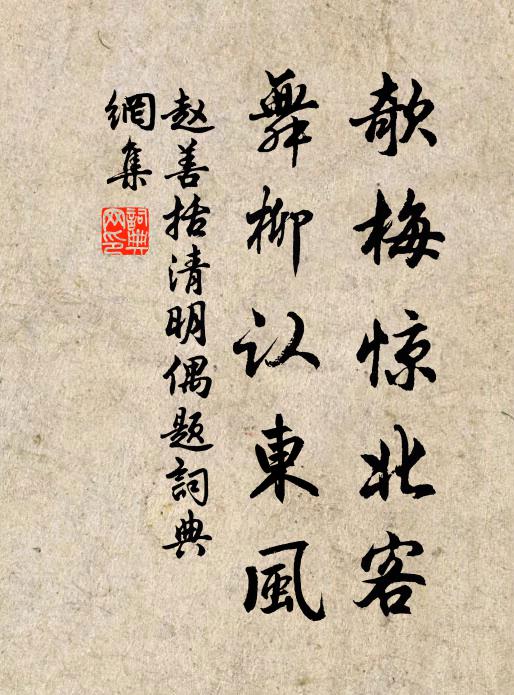 欹梅惊北客
舞柳认東風
赵善括清明偶题詞典
網集
詞典
网印